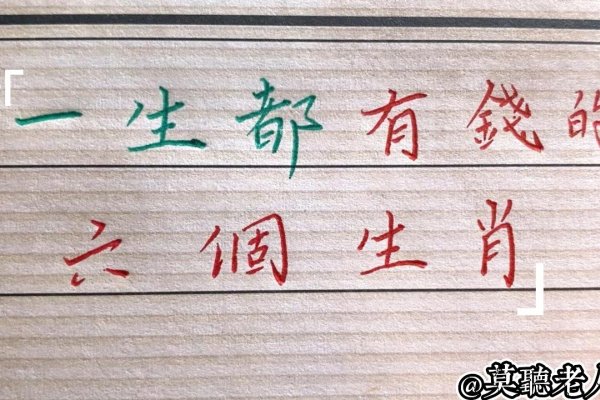 「一生都有錢的
六個生肖」
@莫聽老人